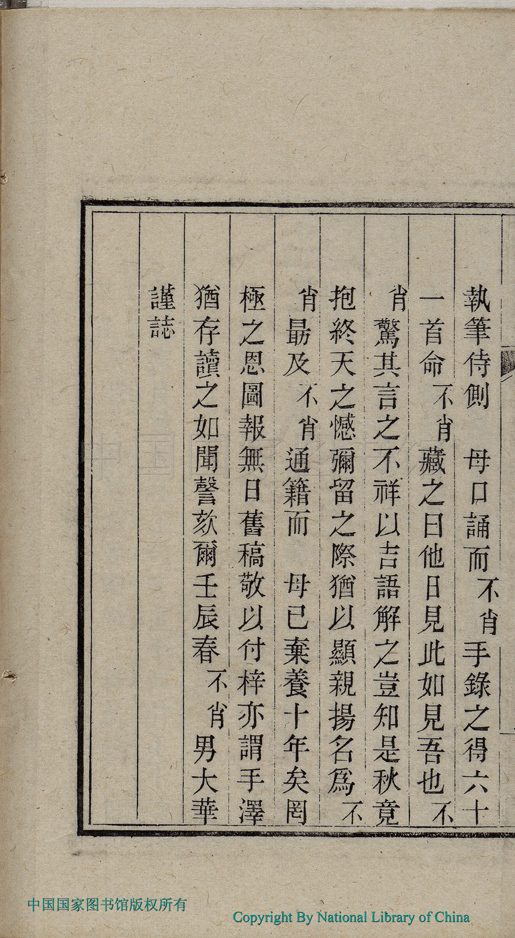 執筆侍側　母口誦而不肖手錄之得六十
一首命不肖藏之曰他日見此如見吾也不
肖驚其言之不祥以吉語解之豈知是秋竟
抱終天之憾彌留之際猶以顯親揚名爲不
肖勗及不肖通籍而　母已棄養十年矣罔
極之恩圖報無日舊稿敬以付梓亦謂手澤
猶存讀之如聞謦欬爾壬辰春不肖男大華
謹誌
中国国家图书馆版权所有
Copyright By National Library of China